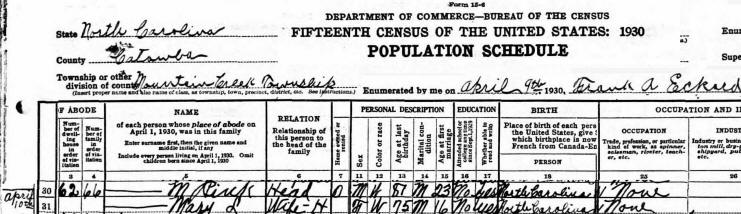 Form 15-6
DEPARTMENT OF COMMERCE—BUREAU OF THE CENSUS
State North Carolina
FIFTEENTH CENSUS OF THE UNITED STATES: 1930
Enu
County Catawba
POPULATION SCHEDULE
Supe
Township or other division of county Mountain Creek Township
Enumerated by me on April 9th 1930, Frank A Eckard
(Insert proper name and also name of class, as township, town, precinct, district, etc. See instructions.)
F ABODE
NAME
of each person whose place of abode on April 1, 1930, was in this family
Enter surname first, then the given name and middle initial, if any
Include every person living on April 1, 1930. Omit children born since April 1, 1930
RELATION
Relationship of this person to the head of the family
PERSONAL DESCRIPTION
EDUCATION
BIRTH
OCCUPATION AND I
Number of dwelling house in order of visitation
Number of family in order of visitation
Home owned or rented
Sex
Color or race
Age at last birthday
Marital condition
Age at first marriage
Whether able to read and write
Place of birth of each pers
the United States, give
which birthplace is now
French from Canada-En
PERSON
OCCUPATION
Trade, profession, or particular kind of work, as spinner, salesman, riveter, teacher, etc.
INDUST
Industry or busin
ton mill, dry-
shipyard, pub
etc.
3 4 5 6 7 11 12 13 14 15 16 17 18 25 26
April 10th
30 62 66 — M. Pink Head O M W 87 M 23 No yes North Carolina None
31 — Mary L Wife-H F W 75 M 16 No yes North Carolina None